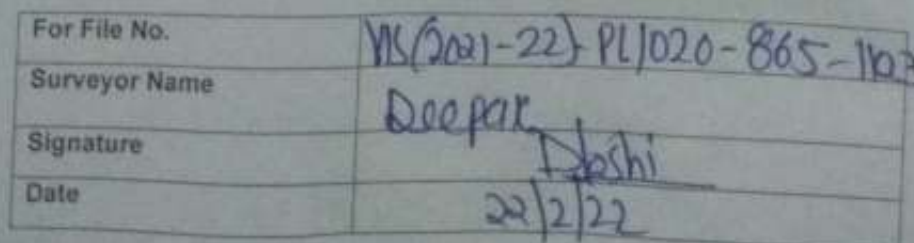 For File No. VIS(2021-22)-PL1020-865-1103
Surveyor Name Deepak
Signature DJoshi
Date 22/2/22